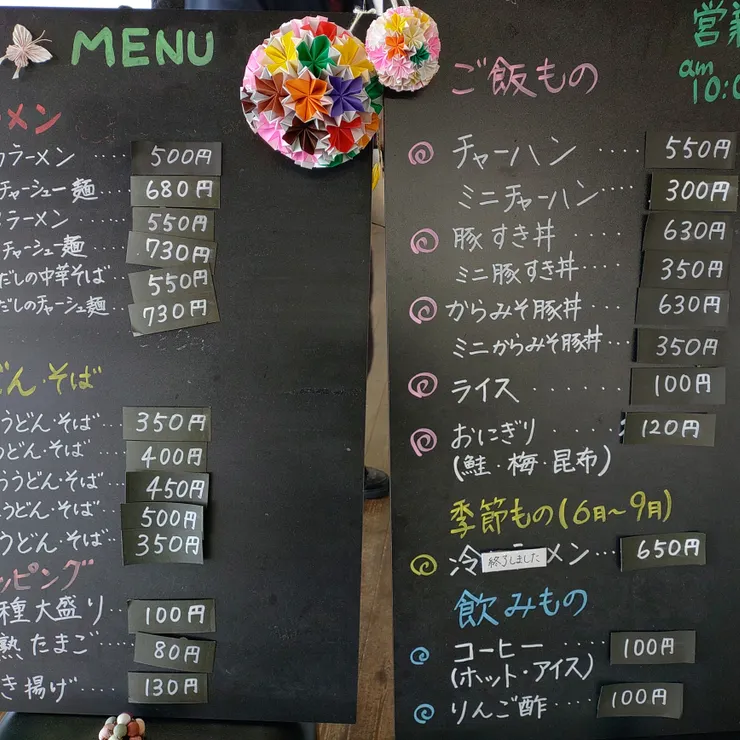 MENU
メン
ラーメン ···· 500円
チャーシュー麺 680円
ラーメン ···· 550円
チャーシュー麺 730円
だしの中華そば·· 550円
だしのチャーシュ麺 730円
どん·そば
うどん·そば·· 350円
うどん·そば 400円
うどん·そば·· 450円
うどん·そば·· 500円
うどん·そば 350円
ッピング
種大盛り·· 100円
熟たまご 80円
き揚げ···· 130円
営業
am
10:0
ご飯もの
チャーハン ···· 550円
ミニチャーハン ···· 300円
豚すき丼····· 630円
ミニ豚すき丼···· 350円
からみそ豚丼··· 630円
ミニからみそ豚丼··· 350円
ライス ······· 100円
おにぎり ······ 120円
(鮭·梅·昆布)
季節もの(6月~9月)
冷 終了しました メン··· 650円
飲みもの
コーヒー ····· 100円
(ホット·アイス)
りんご酢···· 100円